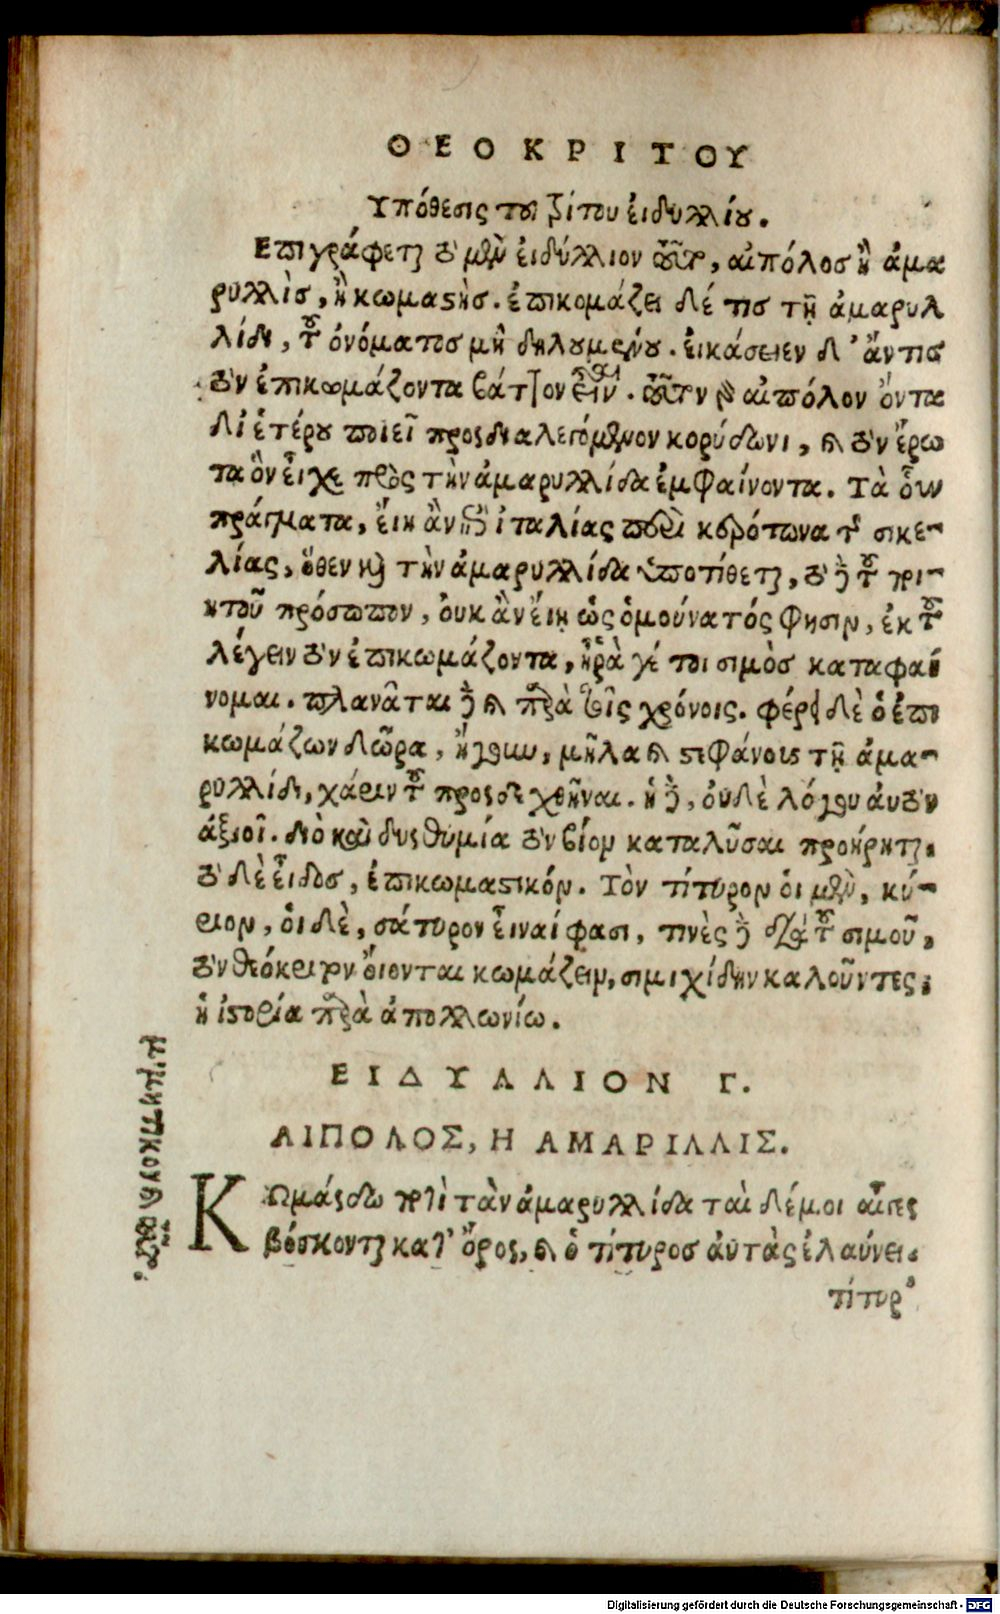 ΘΕΟΚΡΙΤΟΥ
Υπόθεσις του γίτου ἐιδυλλίου.
Επιγράφεται τὸ μὲν ἐιδύλλιον τοῦτο, αἰπόλος ἢ ἀμα
ρυλλὶς, ἢ κωμαστὴς. ἐπικομάζει δέ τις τῇ ἀμαρυλ
λίδι, τοῦ ὀνόματος μὴ δηλουμένου. ἐικάσειεν δ' ἄν τις
τὸν ἐπικωμάζοντα βάττον εἶναι. τοῦτον γὰρ αἰπόλον ὄντα
δι ἑτέρου ποιεῖ προσδιαλεγόμενον κορύδωνι, καὶ τὸν ἔρω
τα ὃν εἶχε πρὸς τὴν ἀμαρυλλίδα ἐμφαίνοντα. Τὰ οὖν
πράγματα, ἔιη ἂν ἐπὶ ἰταλίας περὶ κρότωνα τῆς σικε-
λίας, ὅθεν καὶ τὴν ἀμαρυλλίδα ὑποτίθεται, τὸ δὲ τοῦ γρι-
ητοῦ πρόσωπον, ὀυκ ἂν ἔιη ὡς ὁ μούνατός φησιν, ἐκ τοῦ
λέγειν τὸν ἐπικωμάζοντα, ἦρά γέ τοι σιμὸς καταφαί
νομαι. πλανᾶται δὲ καὶ παρὰ τοῖς χρόνοις. φέρει δὲ ὁ ἐπι
κωμάζων δῶρα, ἤγουν, μῆλα καὶ στεφάνους τῇ ἀμα-
ρυλλίδι, χάριν τοῦ προσδεχθῆναι. ἡ δὲ, ὀυδὲ λόγου ἀυτὸν
ἀξιοῖ. διὸ καὶ δυσθυμία τὸν βίον καταλῦσαι προήρηται.
τὸ δὲ εἶδος, ἐπικωμαστικόν. Τὸν τίτυρον ὁι μὲν, κύ-
ριον, ὁι δὲ, σάτυρον εἶναί φασι, τινὲς δὲ διὰ τοῦ σιμοῦ,
τὸν θεόκριτον ὄιονται κωμάζειν, σιμιχίδην καλοῦντες,
ἡ ἱστορία παρὰ ἀπολλωνίω.
ΕΙΔΥΛΛΙΟΝ Γ.
ΑΙΠΟΛΟΣ, Η ΑΜΑΡΙΛΛΙΣ.
ΚΩμάσδω ποτὶ τὰν ἀμαρυλλίδα ταὶ δέ μοι αἶγες
βόσκονται κατ' ὄρος, καὶ ὁ τίτυρος ἀυτὰς ἐλαύνει.
τίτυρ'
μιμητικου